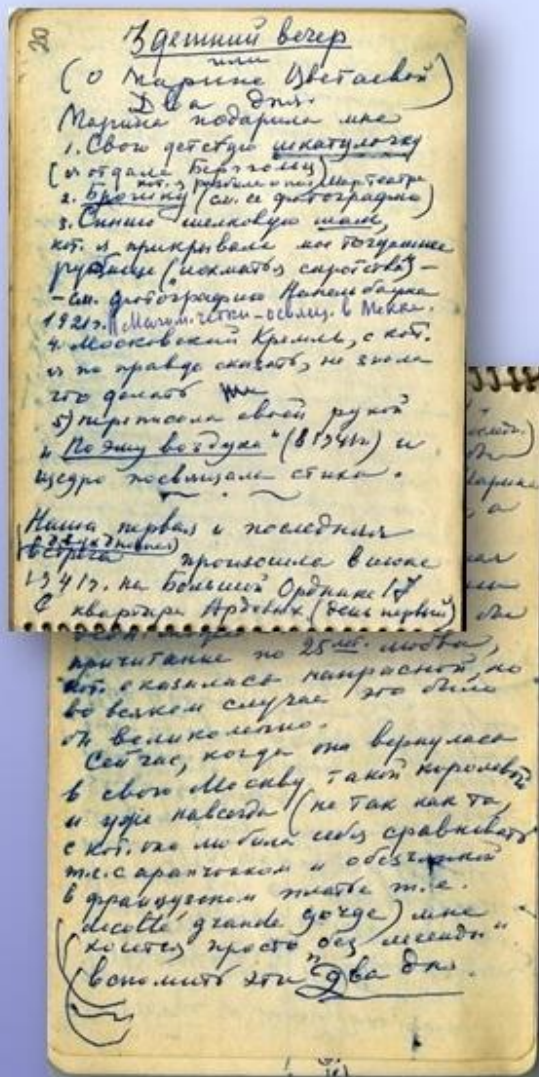 20
Здешний вечер
или
(О Марине Цветаевой)
Два дня.
Марина подарила мне
1. Свою детскую шкатулочку
(я отдала Берггольц)
2. Брошку (см. ее фотографию)
кот. я разбила о пол Мар. Театра
3. Синий шелковый
кот. я прикрывала мое тогдашнее
рубище ("лохматья сиротства") –
– см. фотографию Наппельбаума
1921 г. Магом. четки – освящ. в Мекке.
4. Московский Кремль, с кот.
я по правде сказать, не знала
что делать
5) переписала своей рукой
"Поэму воздуха" (в 1941 г) и
щедро посвящала стихи.
Наша первая и последняя
(двухдневная)
встреча произошла в июне
1941 г. на Большой Ордынке 17
в квартире Ардовых (день первый)
последн.)
Марина
, а
причитание по 25 лет. любви,
кот. оказалась напрасной, но
во всяком случае это было
бы великолепно.
Сейчас, когда она вернулась
в свою Москву такой королевой
и уже навсегда (не так как та,
с кот. она любила себя сравнивать
т.е. с арапчонком и обезьянкой
в французском платье т.е.
décolleté grande gorge) мне
хочется просто "без легенды"
вспомнить эти "Два дня.